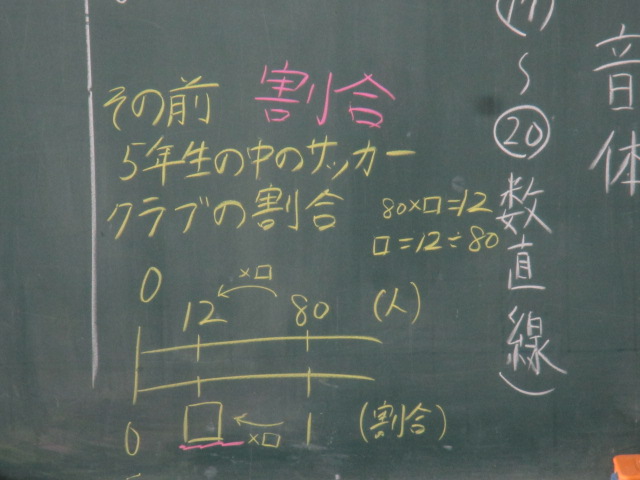 その前 割合
5年生の中のサッカー
クラブの割合
80×□=12
□=12÷80
0 12 ×□ 80 (人)
0 □ ×□ 1 (割合)
～⑳数直線)
音
体